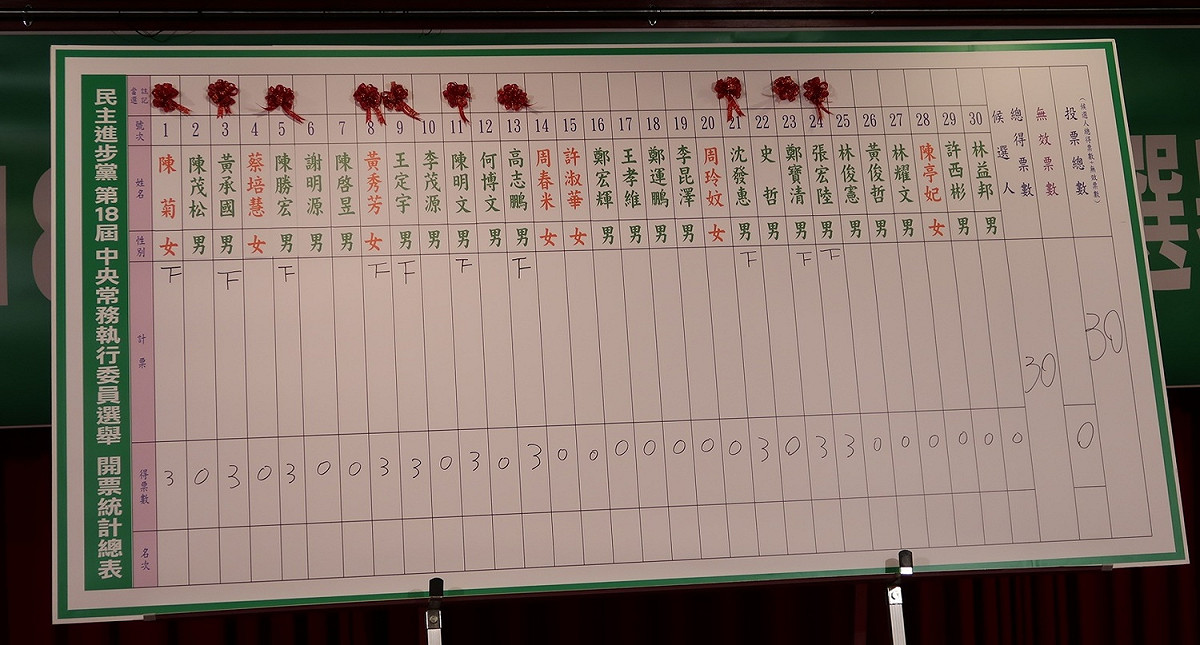 民主進步黨 第18屆 中央常務執行委員選舉 開票統計總表
當選註記
號次 1 2 3 4 5 6 7 8 9 10 11 12 13 14 15 16 17 18 19 20 21 22 23 24 25 26 27 28 29 30
姓名 陳菊 陳茂松 黃承國 蔡培慧 陳勝宏 謝明源 陳啓昱 黃秀芳 王定宇 李茂源 陳明文 何博文 高志鵬 周春米 許淑華 鄭宏輝 王孝維 鄭運鵬 李昆澤 周玲妏 沈發惠 史哲 鄭寶清 張宏陸 林俊憲 黃俊哲 林耀文 陳亭妃 許西彬 林益邦
候選人總得票數
無效票數
投票總數
(候選人總得票數+無效票數)
性別 女 男 男 女 男 男 男 女 男 男 男 男 男 女 女 男 男 男 男 女 男 男 男 男 男 男 男 女 男 男
計票 下 下 下 下 下 下 下 下 下 下
30
30
得票數 3 0 3 0 3 0 0 3 3 0 3 0 3 0 0 0 0 0 0 0 3 0 3 3 0 0 0 0 0 0
0
名次